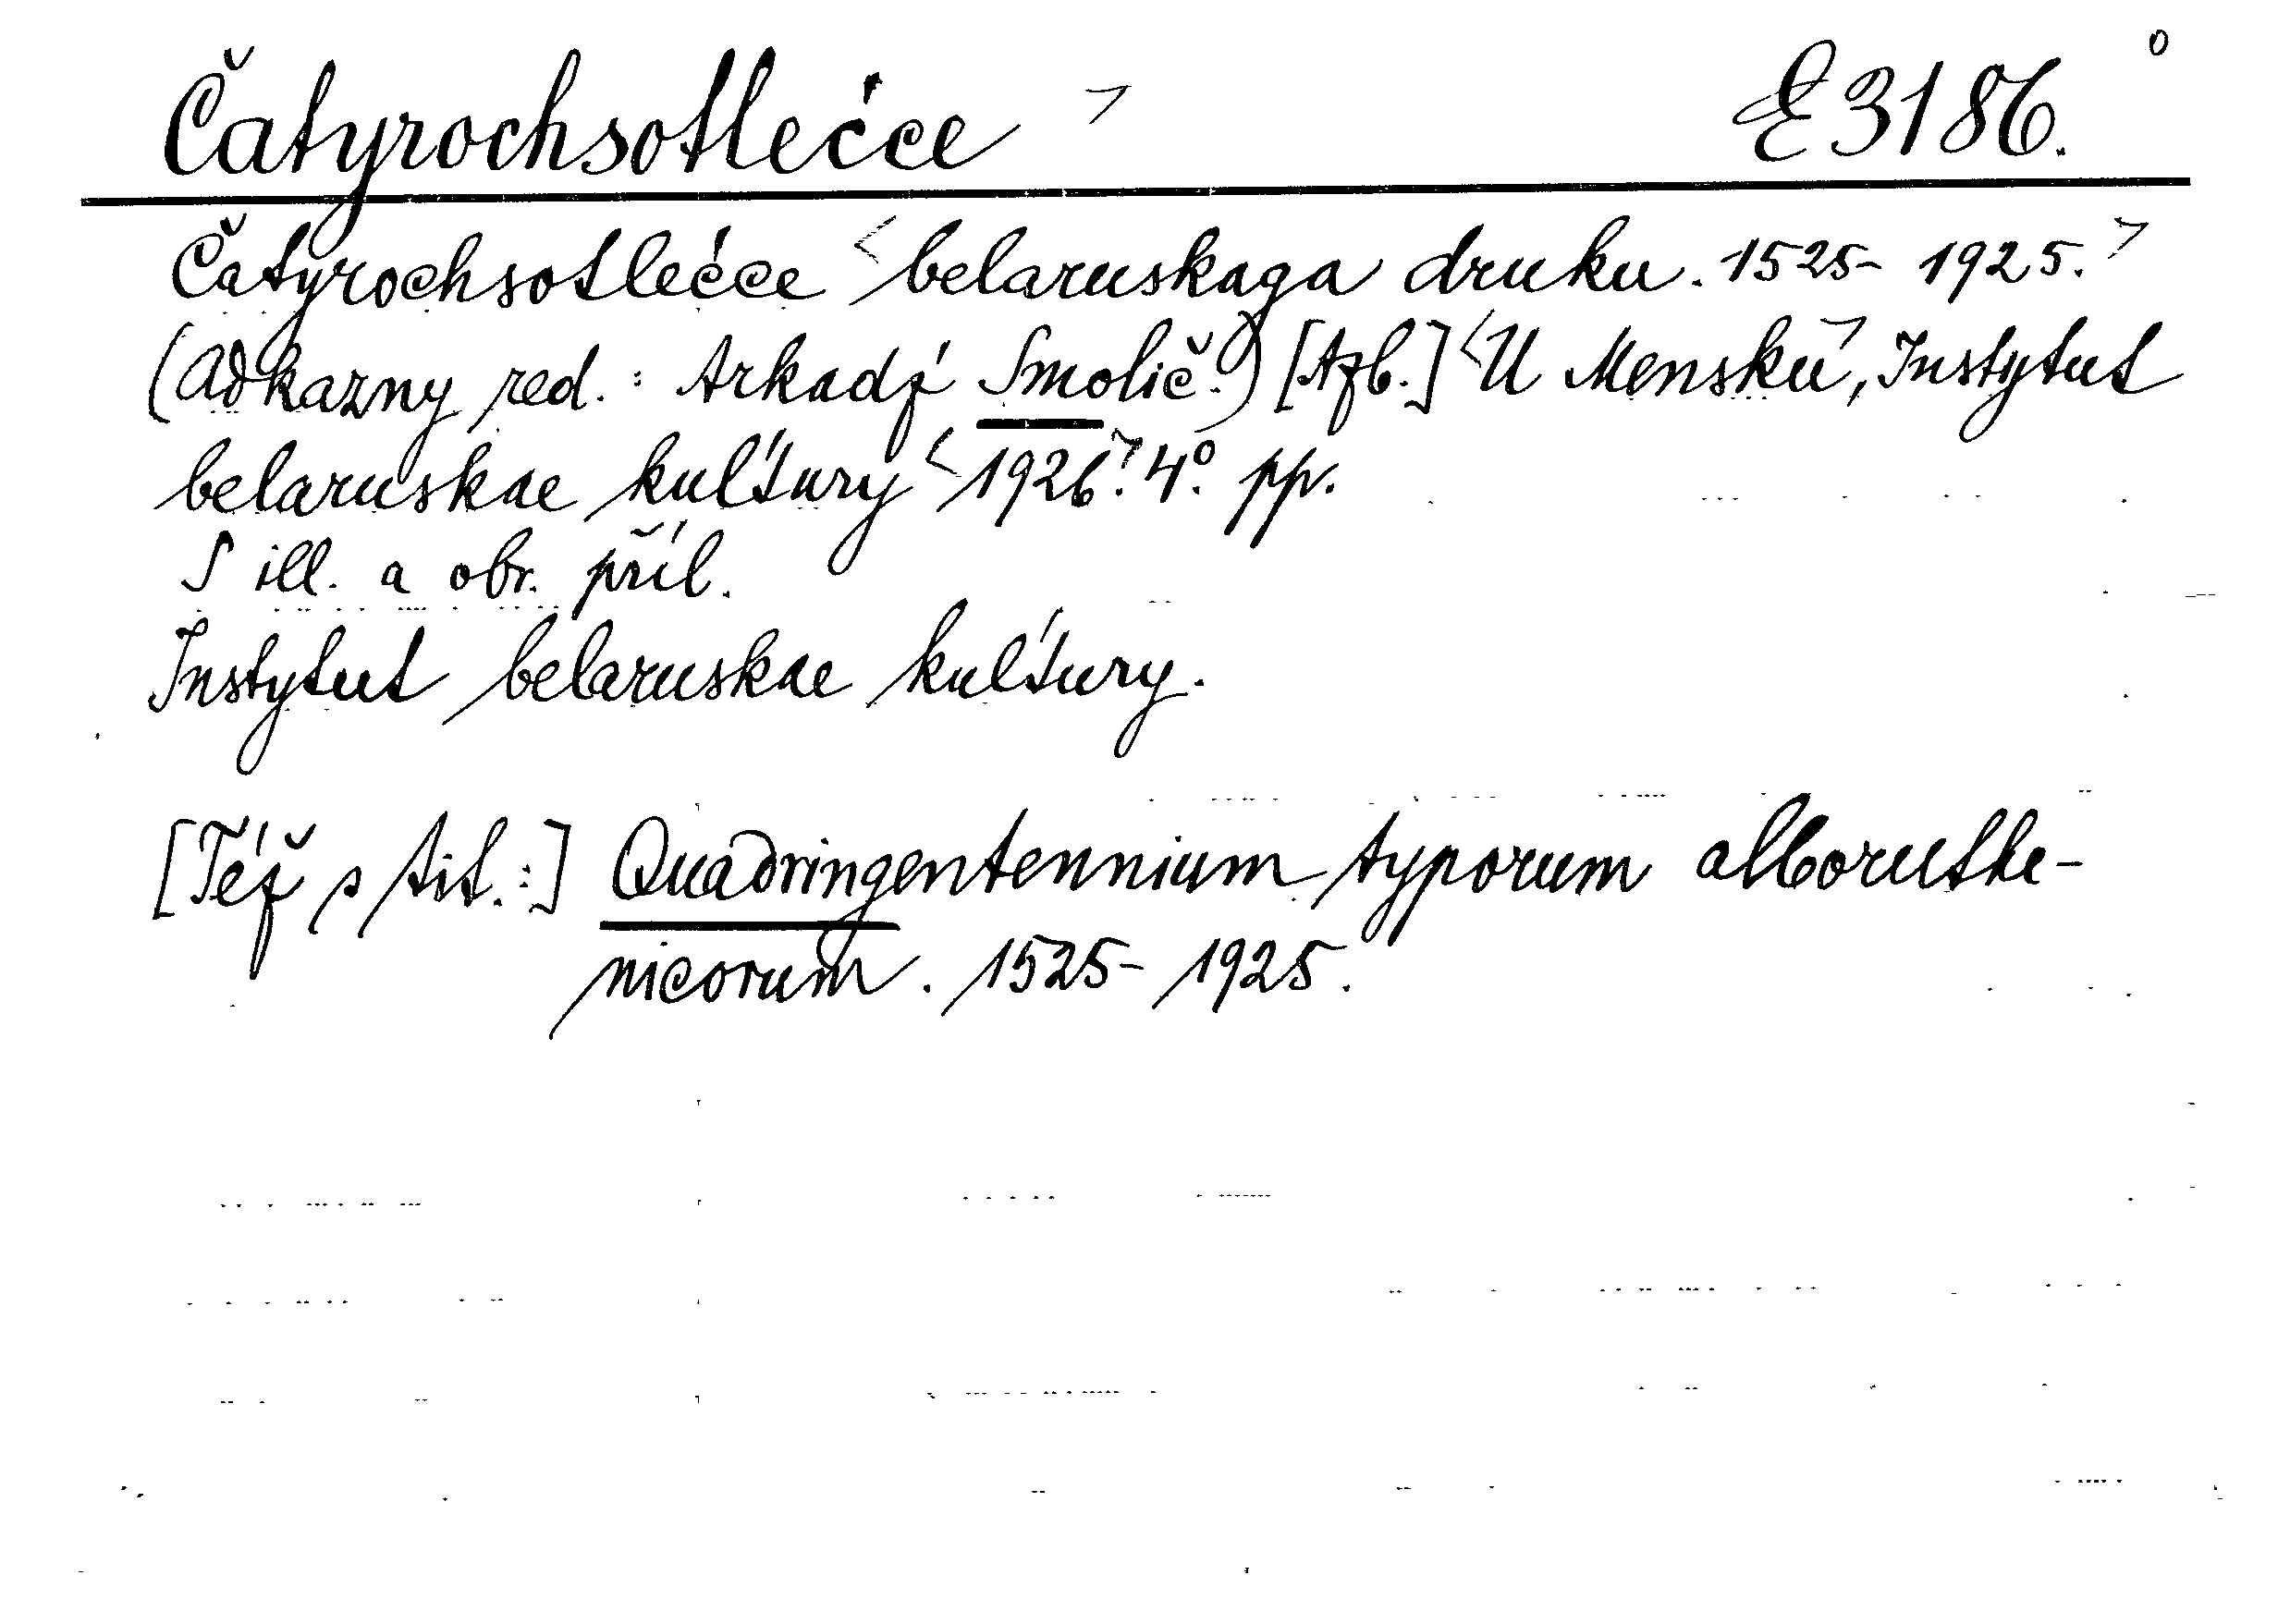 Čatyrochsotlećce > E 3186. o
Čatyrochsotlećce <belaruskaga druku. 1525-1925.>
(Adkazny red.: Arkadź Smolič.) [Azb.] <U Mensku>, Instytut
belaruskae kuĺtury <1926>. 4°. pp.
S ill. a obr. příl.
Instytut belaruskae kuĺtury.
[Též s tit.:] Quadringentennium typorum alboruthe-
nicorum. 1525-1925.